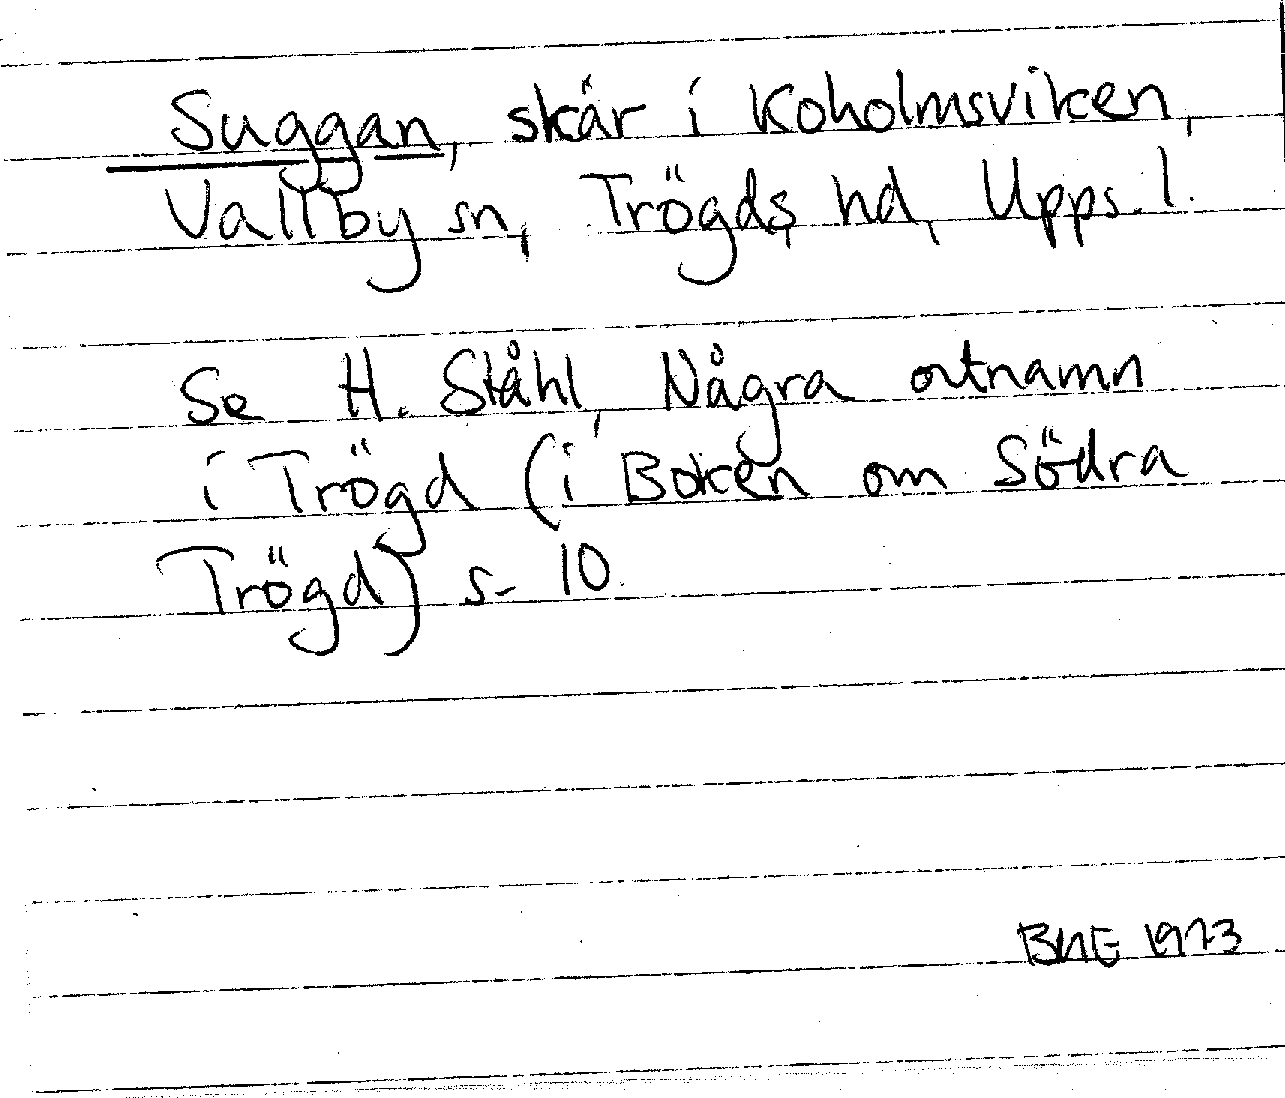 Suggan, skär i Koholmsviken,
Vallby sn, Trögds hd, Upps. l.
Se H. Ståhl, Några ortnamn
i Trögd (i Boken om Södra
Trögd) s. 10.
BHE 1973